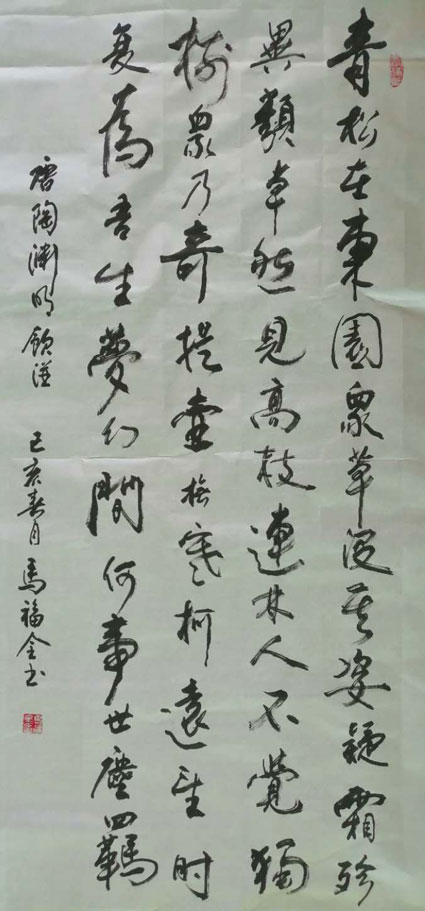 青松在東園衆草没其姿疑霜殄
異類卓然見高枝連林人不覺獨
樹衆乃奇提壺撫寒柯遠望时
复為吾生夢幻間何事世塵羈
唐陶渊明飲酒 己亥春月馬福全书